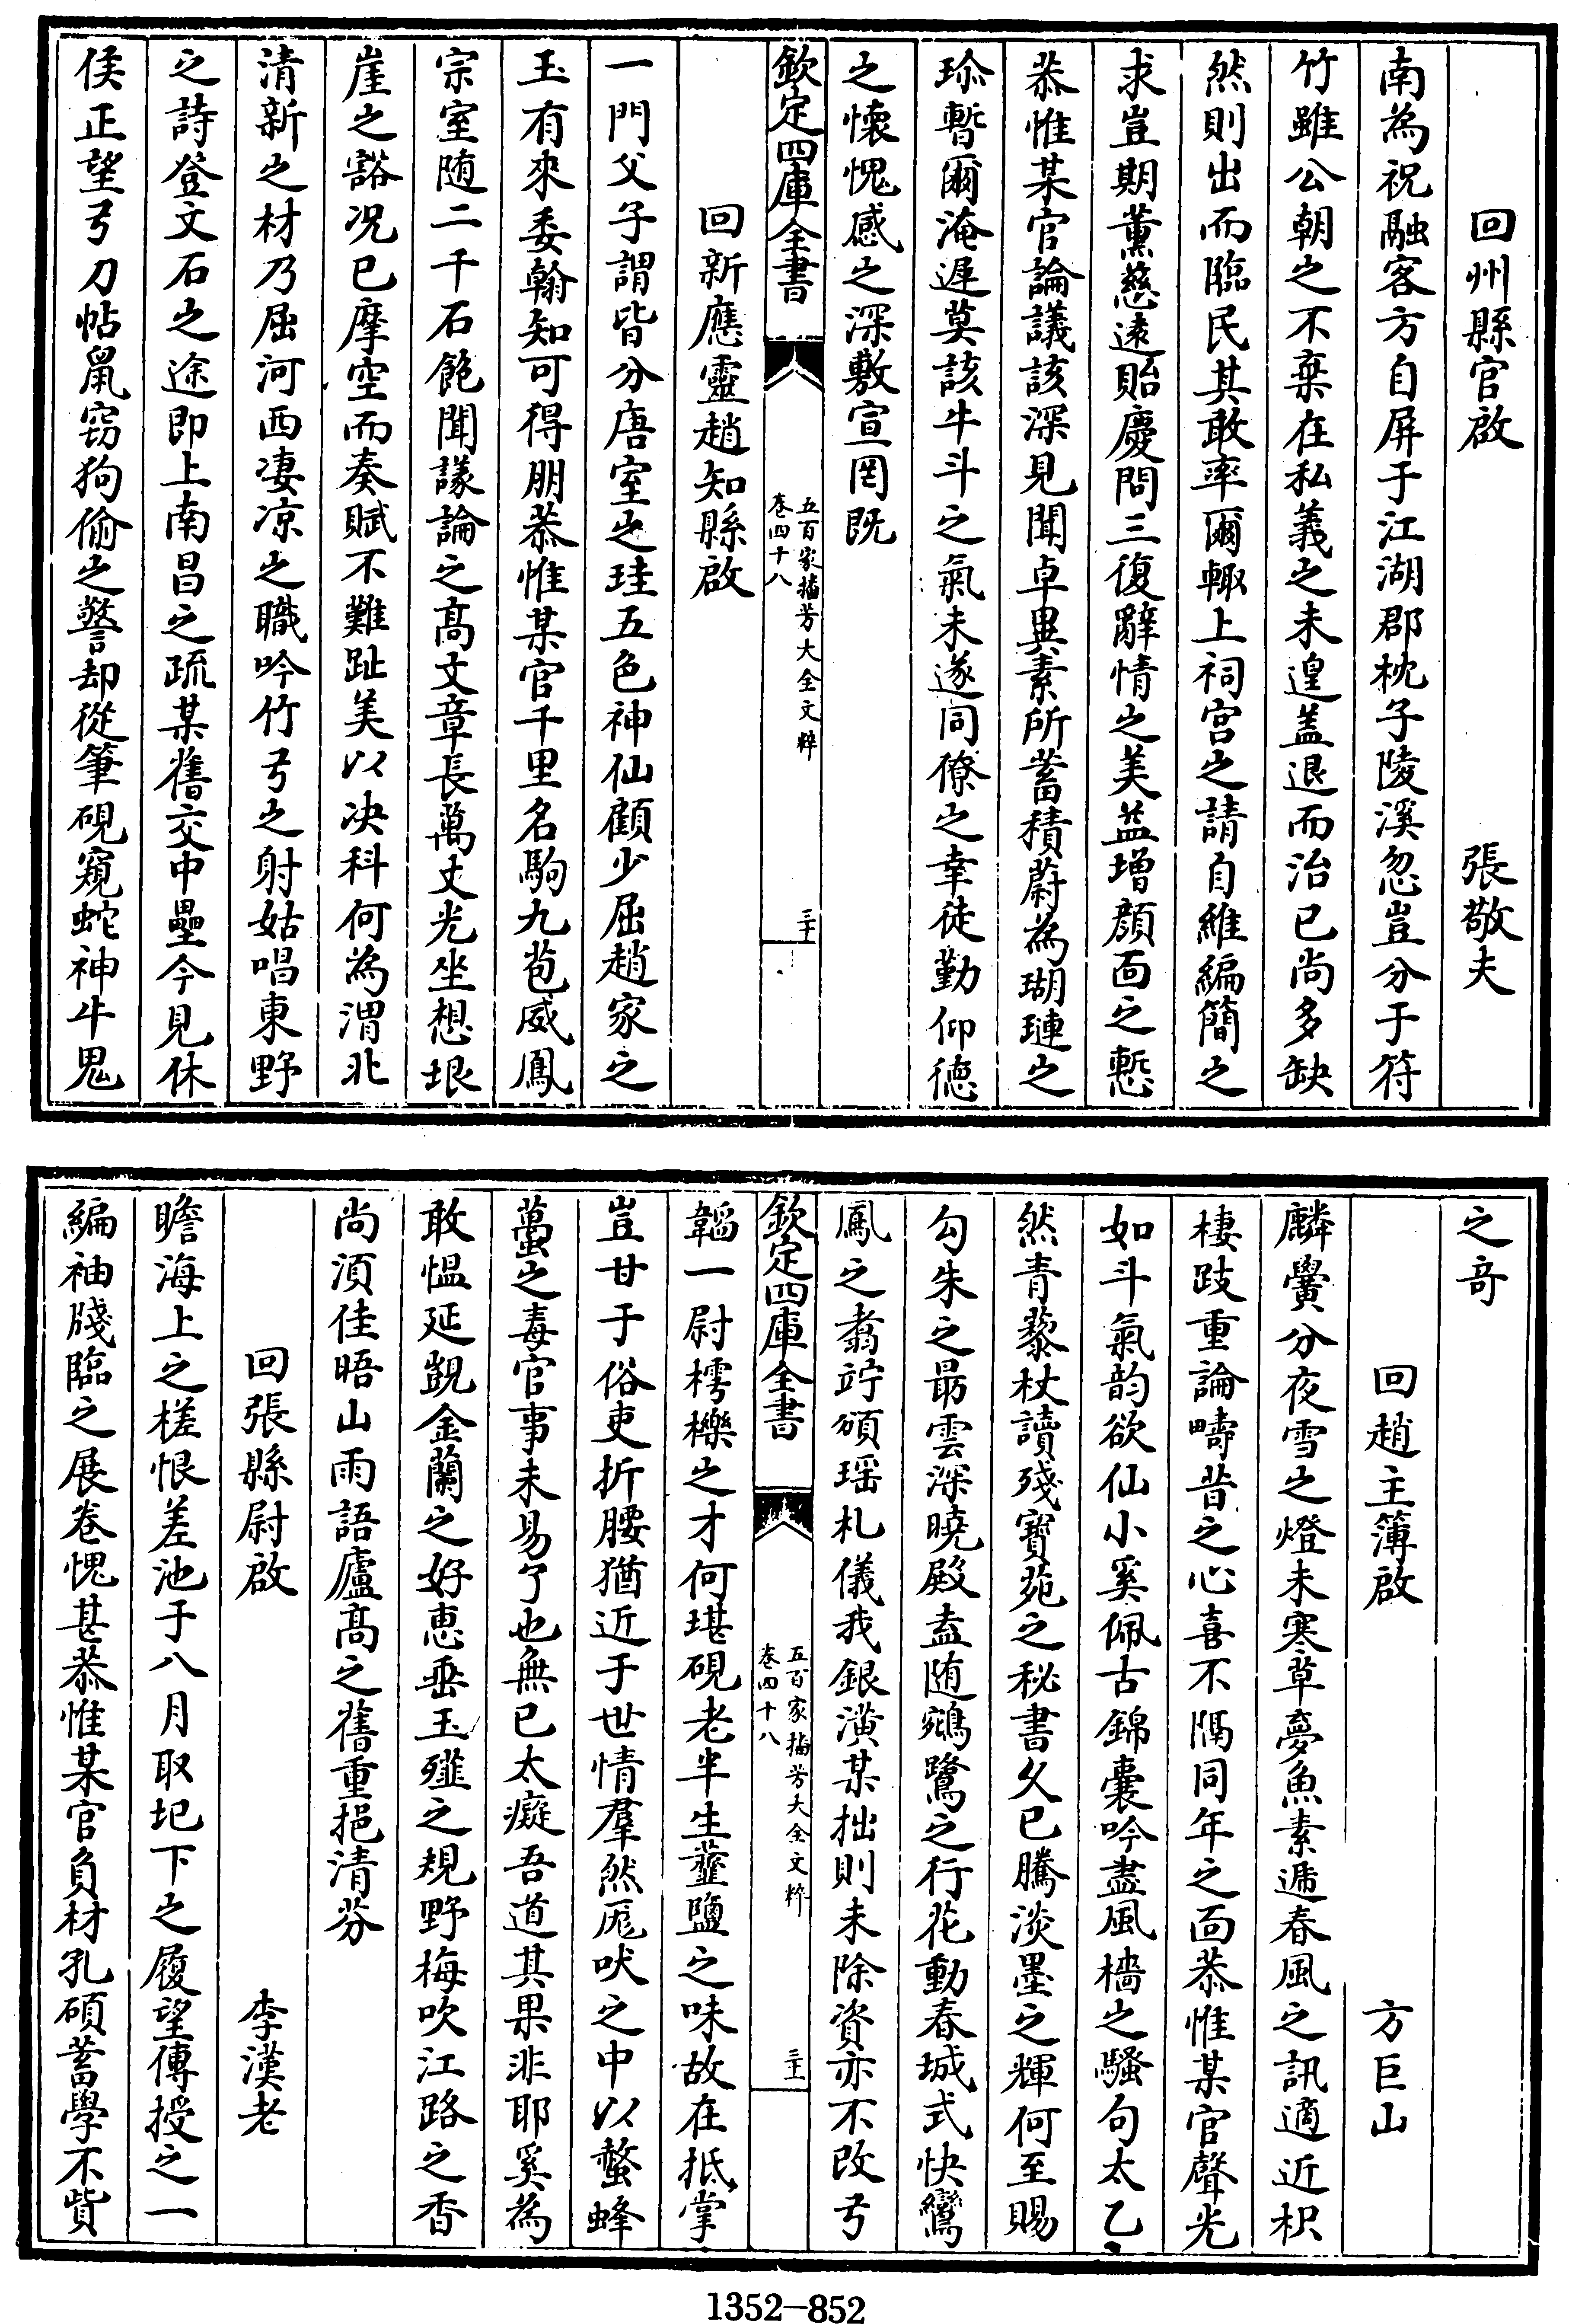 回州縣官啟　張敬夫
南為祝融客方自屏于江湖郡枕子陵溪忽豈分于符
竹雖公朝之不棄在私義之未遑盖退而治已尚多缺
然則出而臨民其敢率爾輙上祠宫之請自維編簡之
求豈期薫慈遠貽慶問三復辭情之美益增顔面之慙
恭惟某官論議該深見聞卓異素所蓄積蔚為瑚璉之
珍暫爾淹遲莫該牛斗之氣未遂同僚之幸徒勤仰德
之懷愧感之深敷宣罔既
欽定四庫全書　五百家播芳大全文粹　卷四十八　三十
回新應靈趙知縣啟
一門父子謂皆分唐室之珪五色神仙顧少屈趙家之
玉有來委翰知可得朋恭惟某官千里名駒九苞威鳳
宗室随二千石飽聞議論之高文章長萬丈光坐想垠
崖之豁况已摩空而奏賦不難趾美以决科何為渭北
清新之材乃屈河西凄凉之職吟竹弓之射姑唱東野
之詩登文石之途即上南昌之疏某舊交中壘今見休
侯正望弓刀帖鼠竊狗偷之警却從筆硯窺蛇神牛鬼
之竒
回趙主簿啟　方巨山
麟黌分夜雪之燈未寒草夢魚素遞春風之訊適近枳
棲跂重論疇昔之心喜不隔同年之面恭惟某官聲光
如斗氣韵欲仙小奚佩古錦囊吟盡風檣之騷句太乙
然青藜杖讀殘寶苑之秘書久已騰淡墨之輝何至賜
勾朱之最雲深曉殿盍随鵷鷺之行花動春城式快鸞
鳳之翥竚頒瑶札儀我銀潢某拙則未除資亦不改弓
韜一尉樗櫟之才何堪硯老半生虀鹽之味故在抵掌
豈甘于俗吏折腰猶近于世情羣然厖吠之中以螫蜂
蠆之毒官事未易了也無已太癡吾道其果非耶奚為
敢愠延覬金蘭之好惠垂玉殌之規野梅吹江路之香
尚湏佳晤山雨語廬高之舊重挹清芬
欽定四庫全書　五百家播芳大全文粹　卷四十八　三十一
回張縣尉啟　李漢老
瞻海上之槎恨差池于八月取圯下之履望傳授之一
編袖牋臨之展卷愧甚恭惟某官負材孔碩蓄學不貲
1352—852